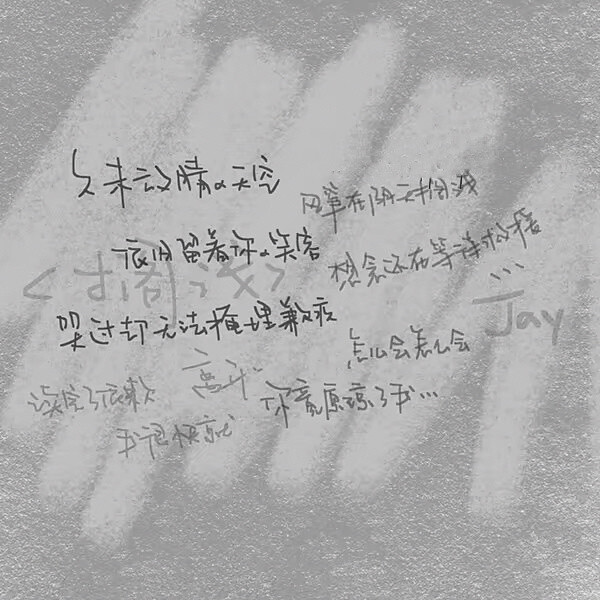 久未放晴的天空
风筝在阴天搁浅
依旧留着你的笑容
想念还在等待救援
<搁浅>
...
—Jay
哭过却无法掩埋歉疚
怎么会怎么会
你竟原谅了我...
读完了依赖
我很快就
离开..